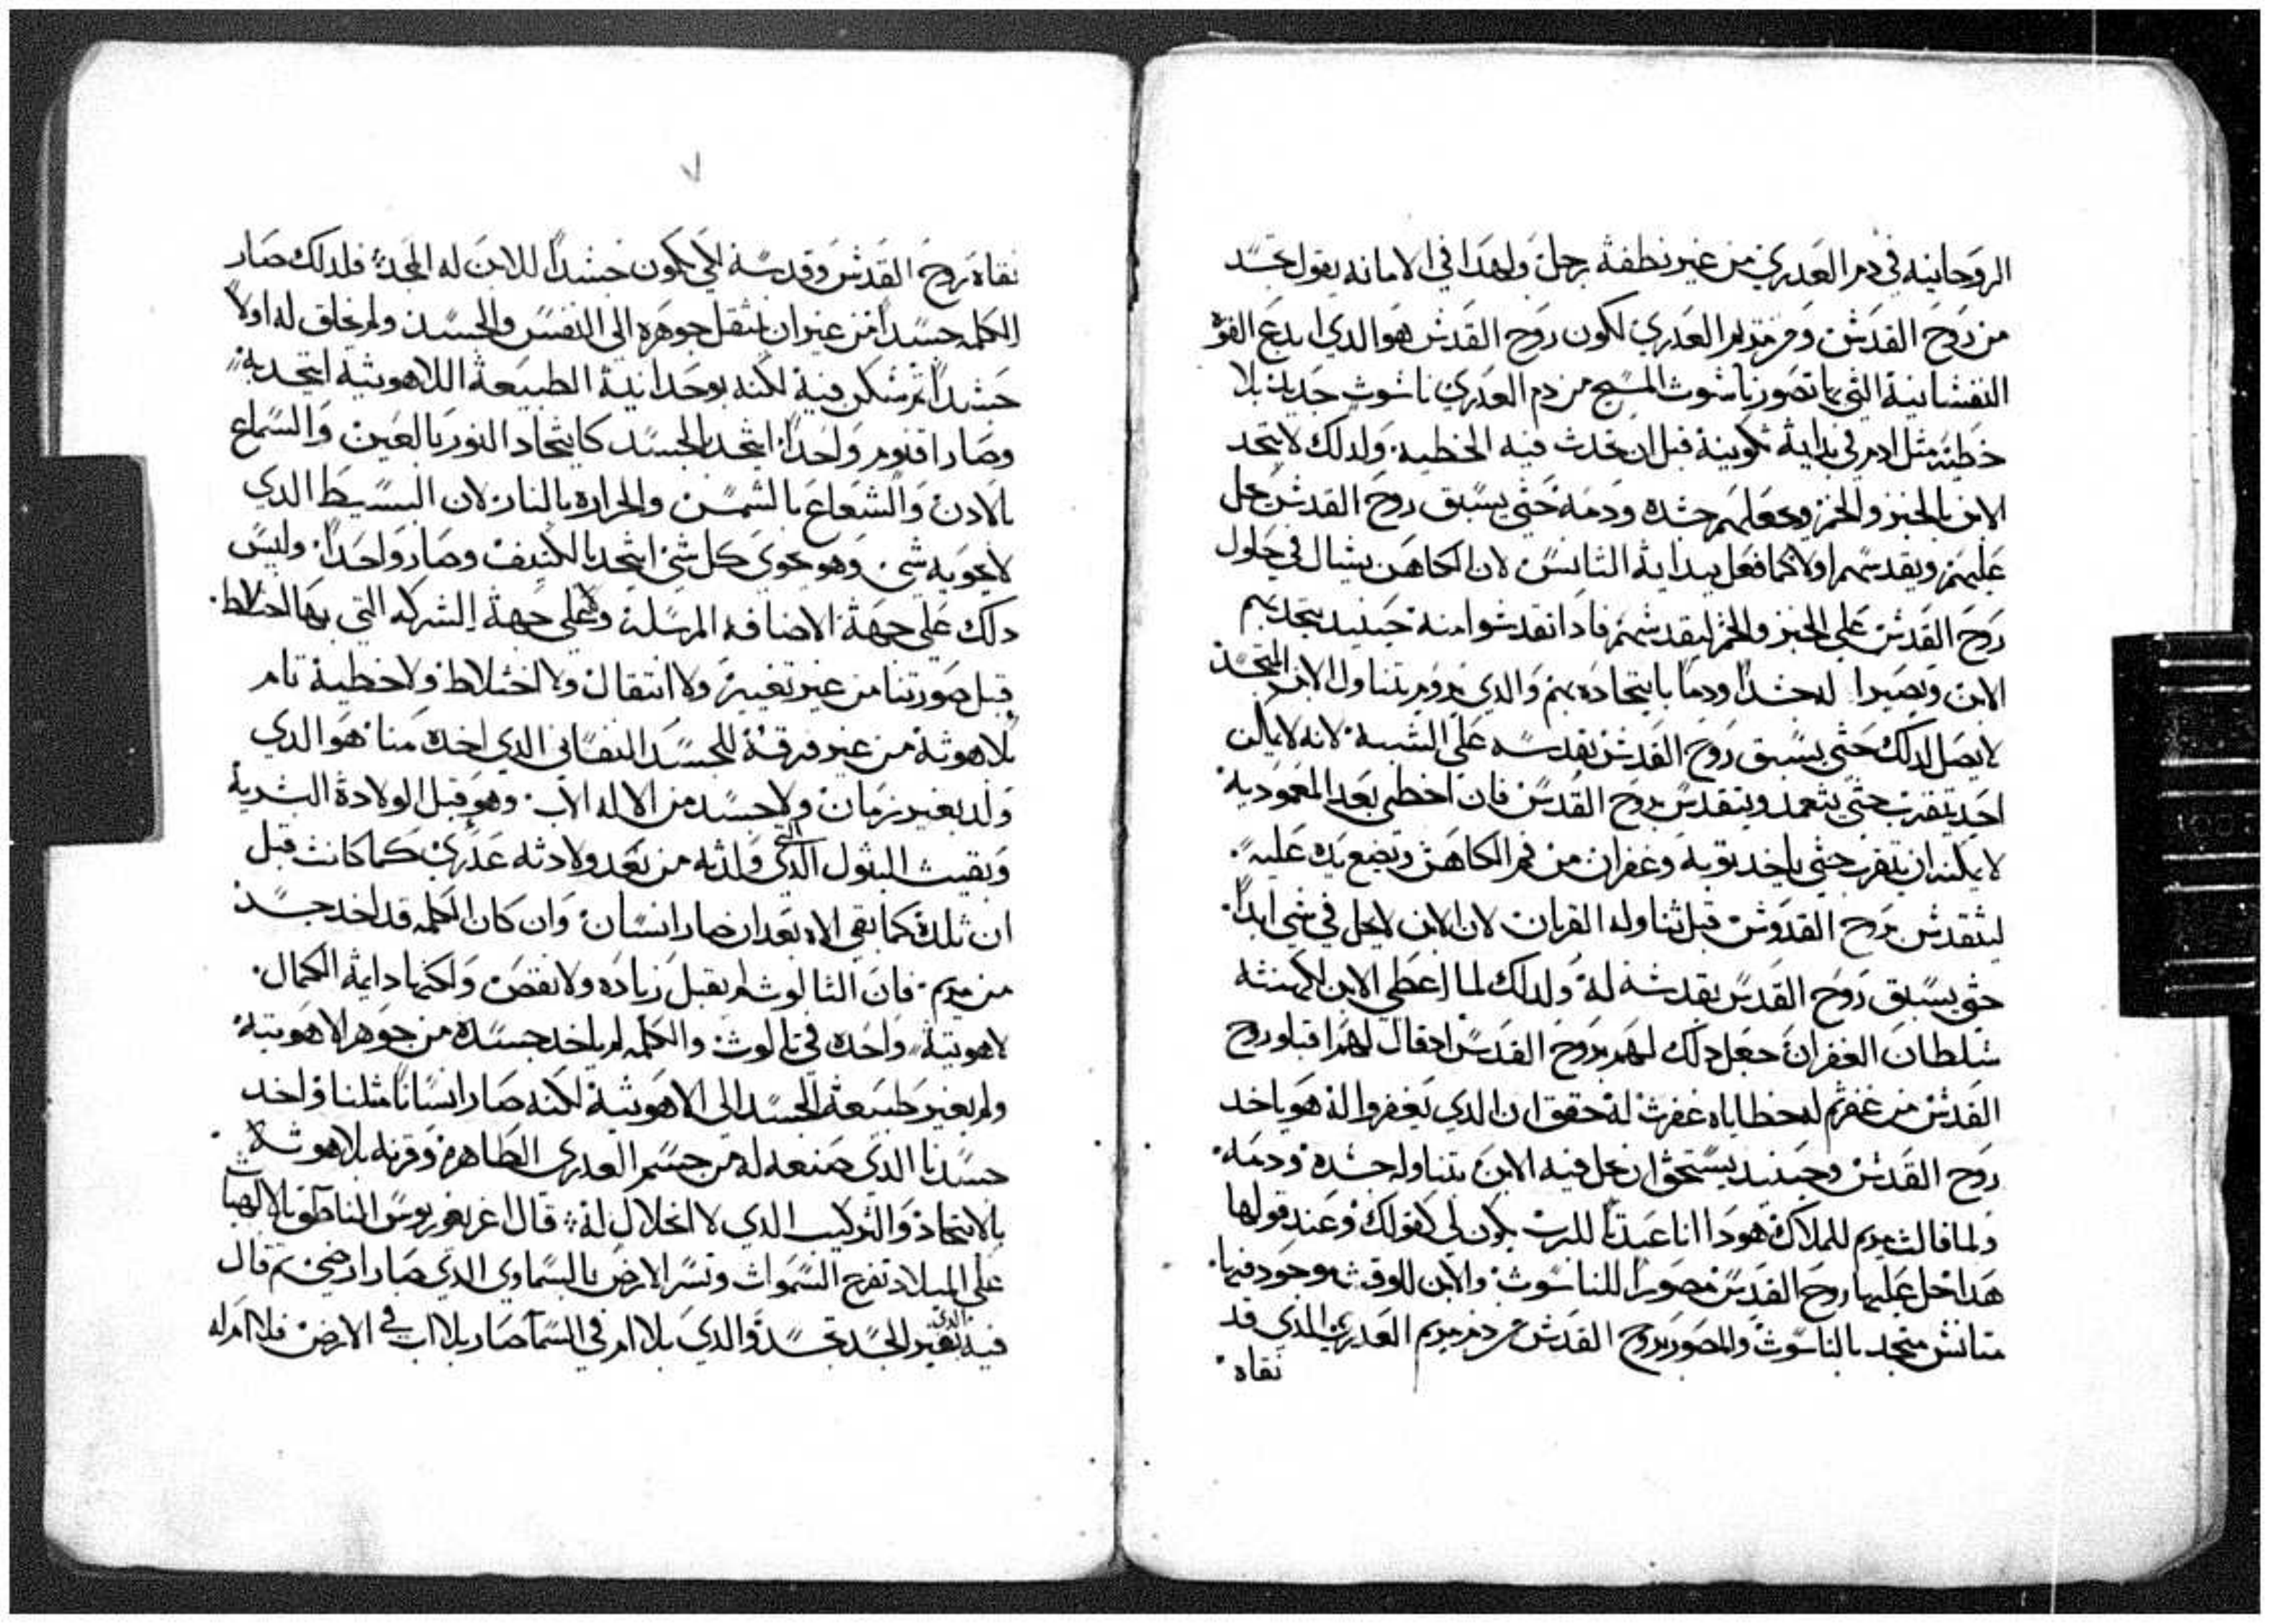 الروحانيه في دم العدري من غير نطفة رجل ولهدا في الامانه يقول تجسد
من روح القدس ومن مريم العدري لكون روح القدس هو الدي ابدع القوة
النفسانية التي بها تصور ناسوت المسيح من دم العدري ناسوت جديد بلا
خطية مثل ادم في بداية تكوينة قبل ان تحدث فيه الخطيه ولدلك لا يتحد
الابن بالخبز والخمر ويجعلهم جسده ودمه حتي يسبق روح القدس يحل
عليهم ويقدسهم اولا كما فعل ببداية التانس لان الكاهن يسال في حلول
روح القدس علي الخبز والخمر ليقدسهم فادا تقدسوا منه حينيد يتحد بهم
الابن ويصيرا له جسدا ودما بايتحاده بهم والدي يروم يتناول الابن المتجسد
لا يصل لدلك حتي يسبق روح القدس يقدسه علي الشبه لانه لا يمكن
احد يتقرب حتي يتعمد ويتقدس بروح القدس فان اخطي بعد المعموديه
لا يمكنه ان يتقرب حتي ياخد توبه وغفران من فم الكاهن ويضع يده عليه
ليتقدس بروح القدوس قبل تناوله القربان لان الابن لا يحل في شي ابدا
حتي يسبق روح القدس يقدسه له ولدلك لما اعطي الابن الكهنته
سلطان الغفران جعل دلك لهم بروح القدس ادقال لهم اقبلو روح
القدس من غفرتم له خطاياه غفرت له حقق ان الدي يغفروا له هو ياخد
روح القدس وحينيد يستحق ان يحل فيه الابن بتناوله جسده ودمه
ولما قالت مريم للملاك هودا انا عبدة للرب يكون لي كقولك وعند قولها
هدا حل عليها روح القدس مصورا للناسوت والابن للوقت موجود فيها
متانس متحد بالناسوت والمصور بروح القدس من دم مريم العدري الدي قد
نقاه
٧
نقاه بروح القدس وقدسه لكي يكون جسدا للابن له المجد فلدلك صار
الكلمه جسدا من غير ان ينتقل جوهره الي النفس والجسد ولم يخلق له اولا
جسدا ثم سكن فية لكنه بوحدانية الطبيعة اللاهوتيه ايتحد به
وصار اقنوم واحدا ايتحد بالجسد كايتحاد النور بالعين والسماع
بالادن والشعاع بالشمس والحراره بالنار لان البسيط الدي
لا يحويه شي وهو يحوي كل شي ايتحد بالكتيف وصار واحدا وليس
دلك علي جهة الاضافه المرسلة ولا علي جهة الشركه التي بها اختلاط
قبل صورتنا من غير تغيير ولا انتقال ولا اختلاط ولا خطية تام
بلاهوتة من غير فرقة للجسد النفساني الدي اخده منا هو الدي
ولد بغير زمان ولا جسد من الاله الاب وهو قبل الولادة البشرية
وبقيت البتول الدي التي ولدته من بعد ولادته عدري كما كانت قبل
ان تلده كما بقي الاه بعد ان صار انسان وان كان الكلمه قد اخد جسد
من مريم فان التالوت لم يقبل زياده ولا نقص ولكنها دايمة الكمال
لاهوتية واحده في تالوت والكلمه لم ياخد جسده من جوهر لاهوتية
ولم يغير طبيعة الجسد الي الاهوتية لكنه صار انسانا مثلنا واخد
جسدنا الدي صنعه له من جسم العدري الطاهره وقرنه بلاهوته
بالايتحاد والتركيب الدي لا انحلال له قال اغريغوريوس الناطق بالالهيات
علي الميلاد تفرح السموات وتسر الارض بالسماوي الدي صار ارضي ثم قال
فيه الدي بغير الجسد تجسد والدي بلا ام في السما صار بلا اب في الارض فلا ام له